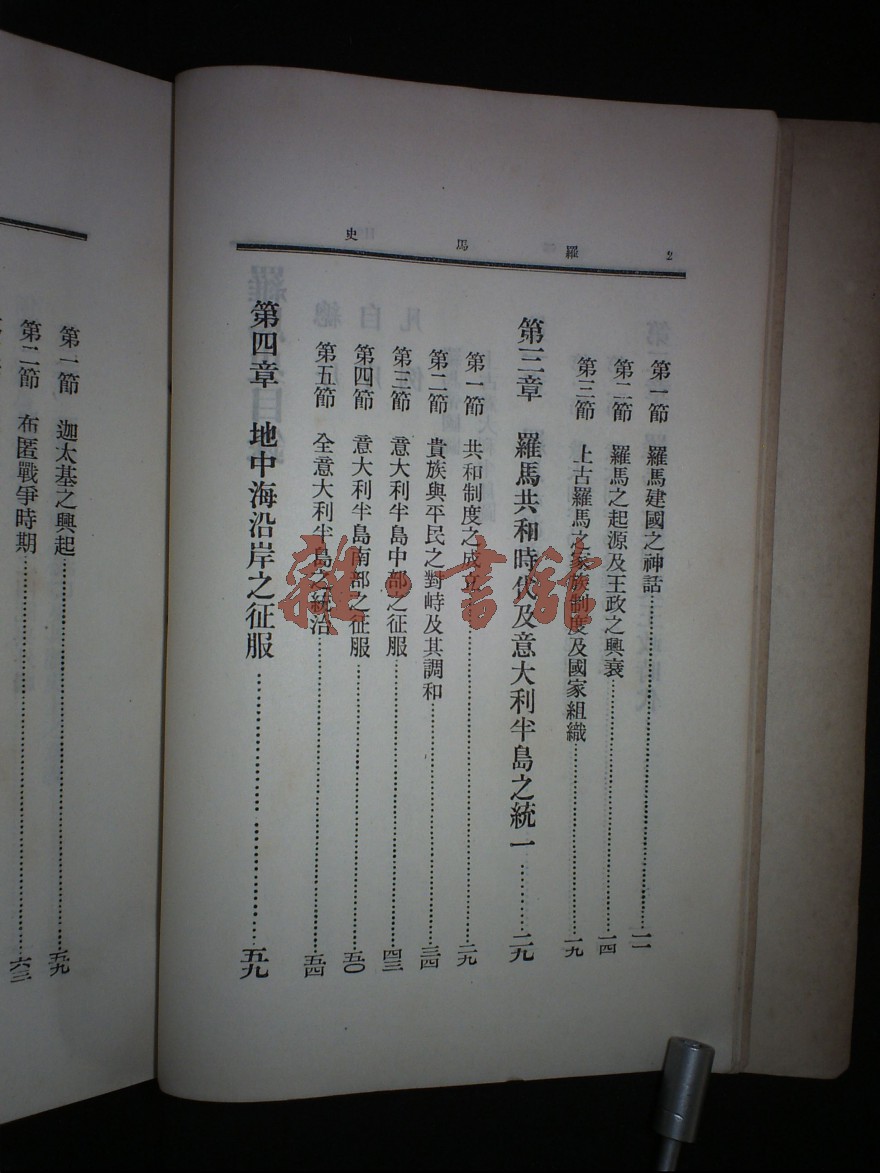 羅馬史 2
第一節 羅馬建國之神話 一一
第二節 羅馬之起源及王政之興衰 一四
第三節 上古羅馬之家族制度及國家組織 一九
第三章 羅馬共和時代及意大利半島之統一 二九
第一節 共和制度之成立 二九
第二節 貴族與平民之對峙及其調和 三四
第三節 意大利半島中部之征服 四三
第四節 意大利半島南部之征服 五〇
第五節 全意大利半島之統治 五四
第四章 地中海沿岸之征服 五九
第一節 迦太基之興起 五九
第二節 布匿戰爭時期 六三
雜·書館